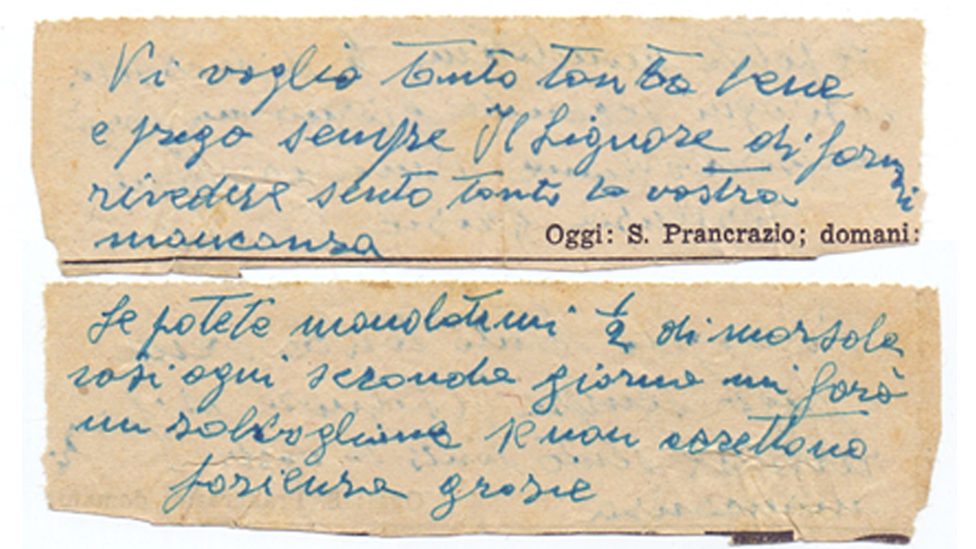 Vi voglio tanto tanto bene
e prego sempre Il Signore di farmi
rivedere sento tanto la vostra
mancanza
Oggi: S. Prancrazio; domani:
Se potete mandatemi ½ di marsala
così ogni seconda giorno mi farò
un zabaglione se non accettano
pazienza grazie